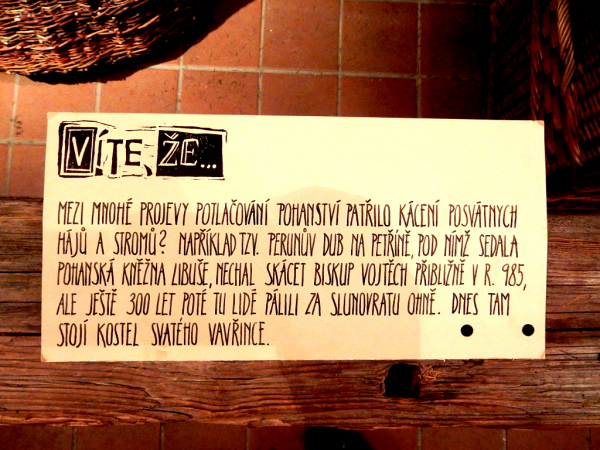 VÍTE, ŽE...
MEZI MNOHÉ PROJEVY POTLAČOVÁNÍ POHANSTVÍ PATŘILO KÁCENÍ POSVÁTNYCH
HÁJŮ A STROMŮ? NAPŘÍKLAD TZV. PERUNŮV DUB NA PETŘÍNĚ, POD NÍMŽ SEDALA
POHANSKÁ KNĚŽNA LIBUŠE, NECHAL SKÁCET BISKUP VOJTĚCH PŘIBLIŽNĚ V R. 985,
ALE JEŠTĚ 300 LET POTÉ TU LIDÉ PÁLILI ZA SLUNOVRATU OHNĚ. DNES TAM
STOJÍ KOSTEL SVATÉHO VAVŘINCE.